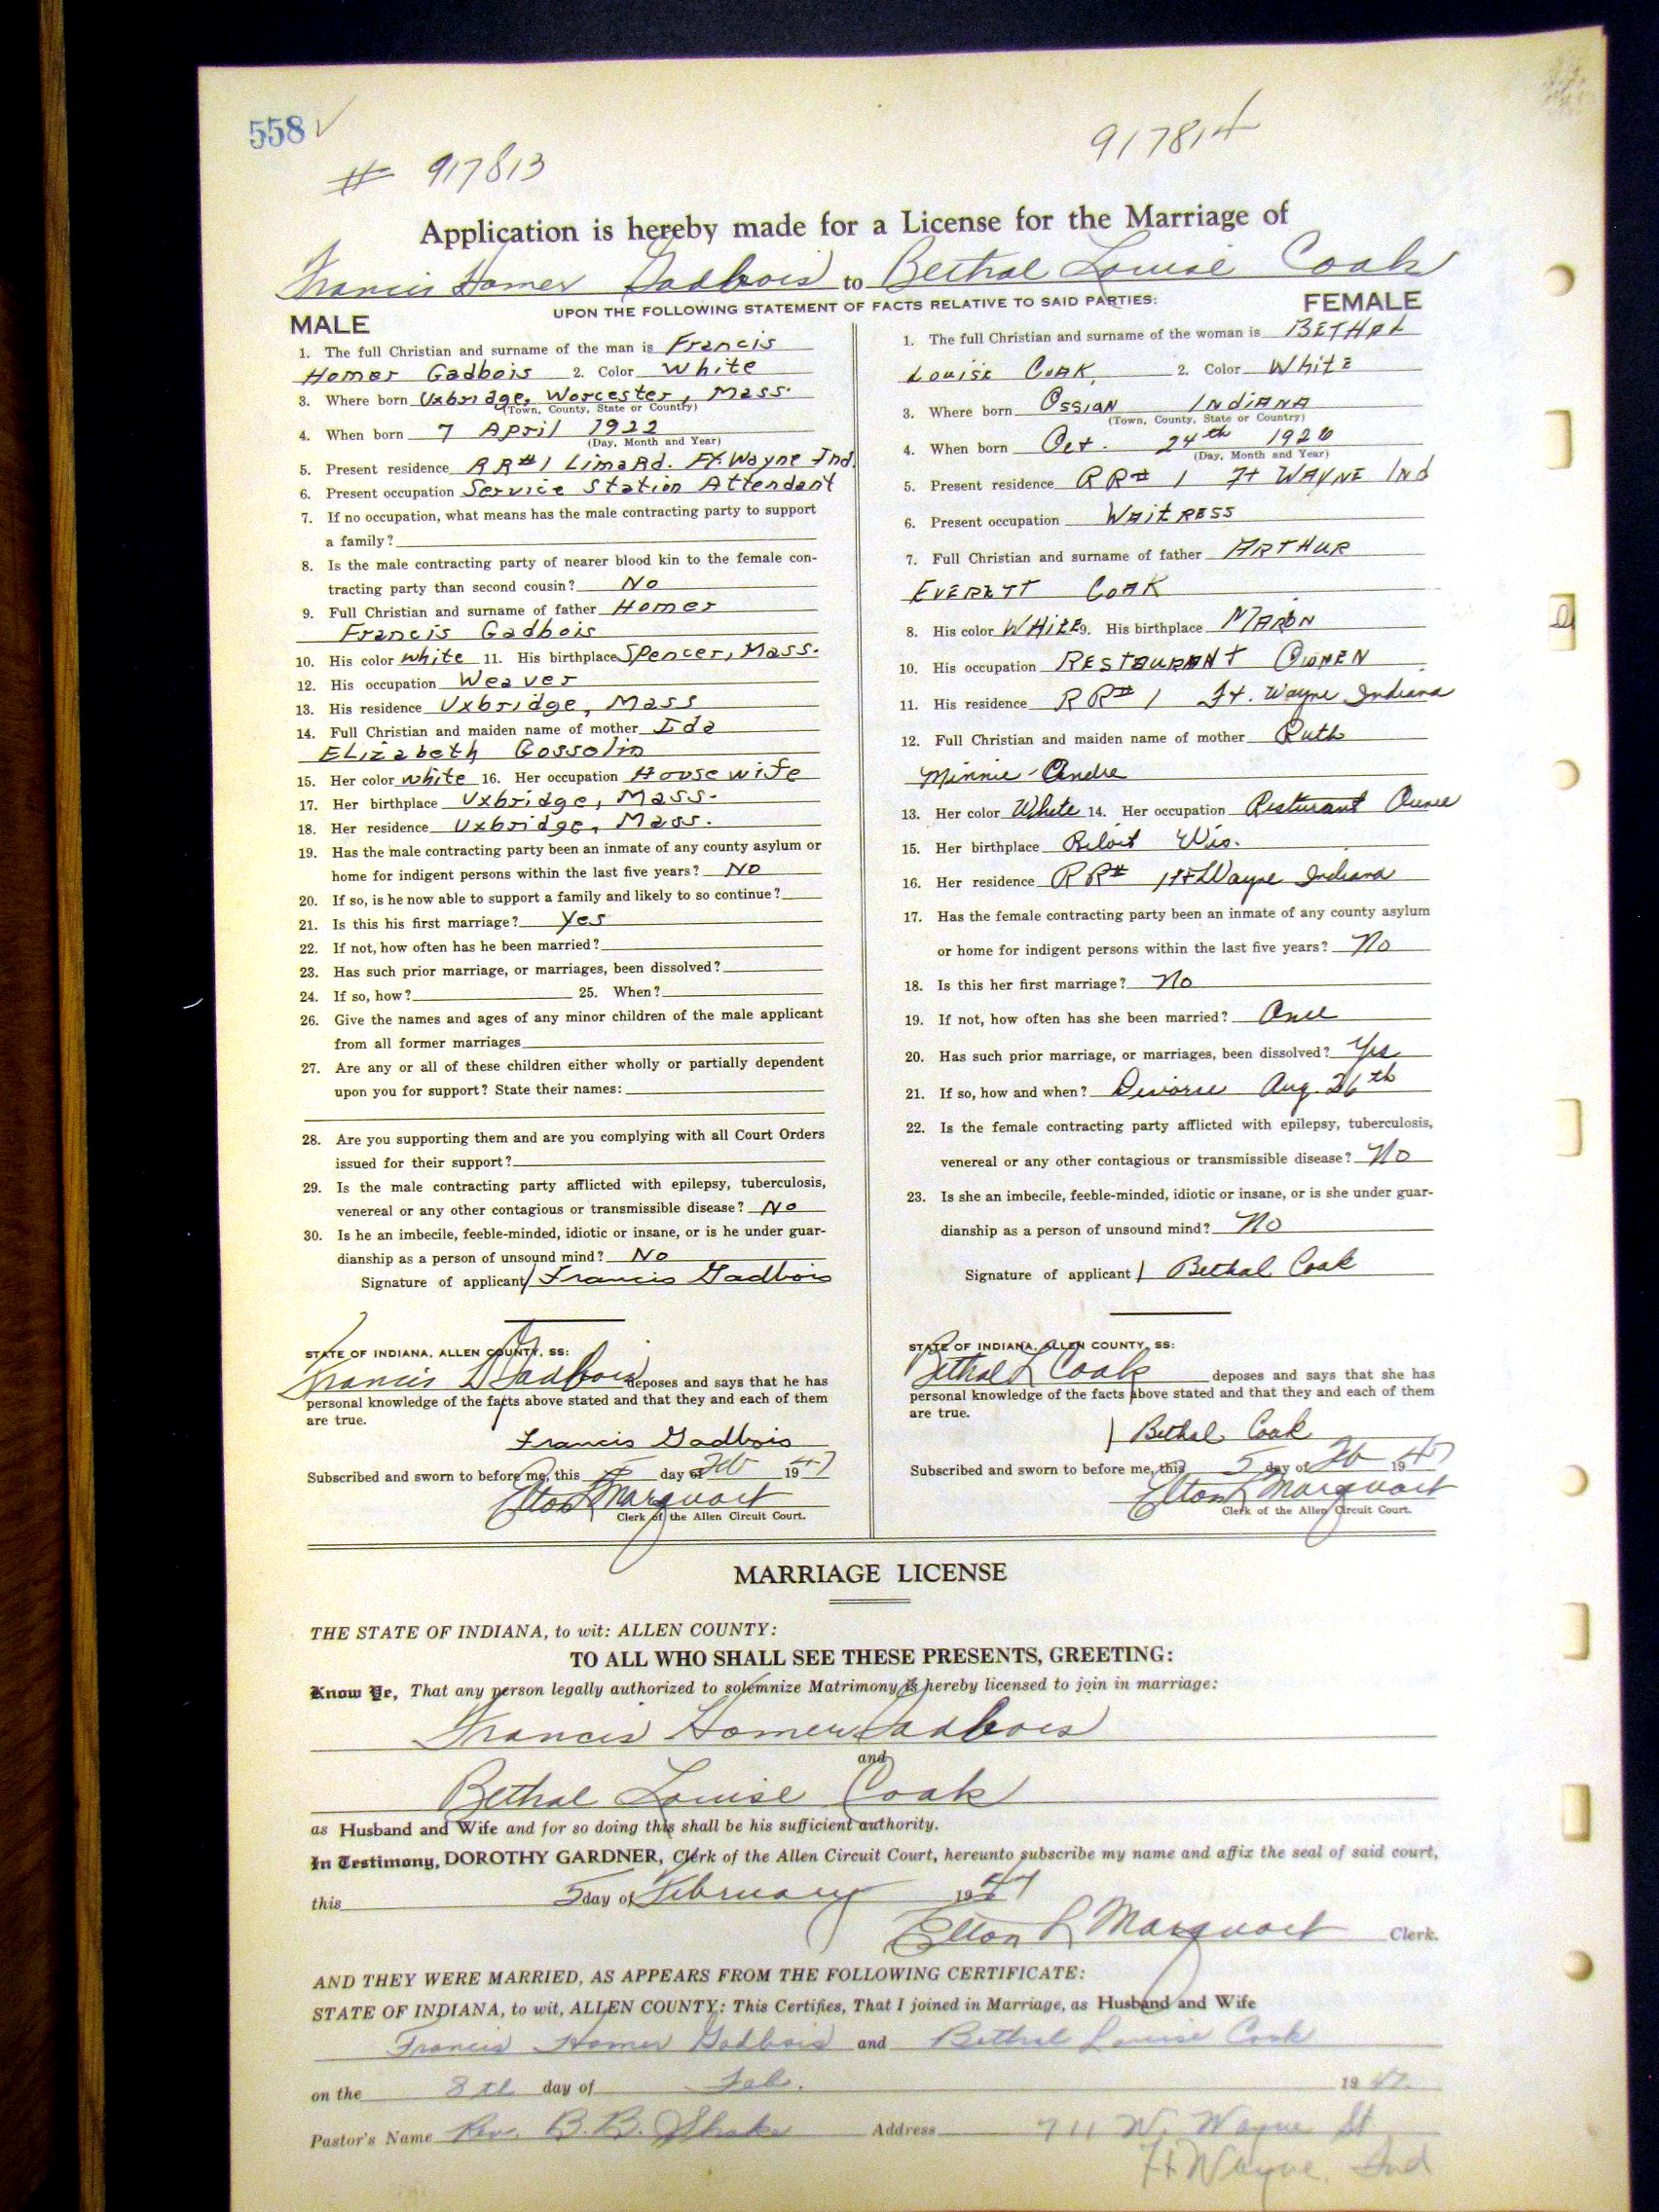 558 ✓
# 917813
917814
Application is hereby made for a License for the Marriage of
Francis Homer Gadbois to Bethal Louise Coak
UPON THE FOLLOWING STATEMENT OF FACTS RELATIVE TO SAID PARTIES:
MALE
1. The full Christian and surname of the man is Francis
Homer Gadbois 2. Color White
3. Where born Uxbridge, Worcester, Mass.
(Town, County, State or Country)
4. When born 7 April 1922
(Day, Month and Year)
5. Present residence RR#1 Lima Rd. Ft. Wayne Ind.
6. Present occupation Service Station Attendant
7. If no occupation, what means has the male contracting party to support
a family?
8. Is the male contracting party of nearer blood kin to the female con-
tracting party than second cousin? No
9. Full Christian and surname of father Homer
Francis Gadbois
10. His color white 11. His birthplace Spencer, Mass.
12. His occupation Weaver
13. His residence Uxbridge, Mass
14. Full Christian and maiden name of mother Ida
Elizabeth Gosselin
15. Her color white 16. Her occupation Housewife
17. Her birthplace Uxbridge, Mass.
18. Her residence Uxbridge, Mass.
19. Has the male contracting party been an inmate of any county asylum or
home for indigent persons within the last five years? No
20. If so, is he now able to support a family and likely to so continue?
21. Is this his first marriage? Yes
22. If not, how often has he been married?
23. Has such prior marriage, or marriages, been dissolved?
24. If so, how? 25. When?
26. Give the names and ages of any minor children of the male applicant
from all former marriages
27. Are any or all of these children either wholly or partially dependent
upon you for support? State their names:
28. Are you supporting them and are you complying with all Court Orders
issued for their support?
29. Is the male contracting party afflicted with epilepsy, tuberculosis,
venereal or any other contagious or transmissible disease? No
30. Is he an imbecile, feeble-minded, idiotic or insane, or is he under guar-
dianship as a person of unsound mind? No
Signature of applicant Francis Gadbois
STATE OF INDIANA, ALLEN COUNTY, SS:
Francis Gadbois deposes and says that he has
personal knowledge of the facts above stated and that they and each of them
are true.
Francis Gadbois
Subscribed and sworn to before me, this 5 day of Feb 1947
Elton L Marquart
Clerk of the Allen Circuit Court.
FEMALE
1. The full Christian and surname of the woman is BETHAL
Louise COAK 2. Color White
3. Where born OSSIAN INDIANA
(Town, County, State or Country)
4. When born Oct. 24th 1926
(Day, Month and Year)
5. Present residence RR# 1 Ft WAYNE Ind
6. Present occupation WAITRESS
7. Full Christian and surname of father ARTHUR
EVERETT COAK
8. His color WHITE 9. His birthplace
10. His occupation RESTAURANT OWNER
11. His residence RR# 1 Ft. Wayne Indiana
12. Full Christian and maiden name of mother Ruth
Minnie Andre
13. Her color White 14. Her occupation Resturant Owner
15. Her birthplace Beloit Wis.
16. Her residence RR# 1 Ft Wayne Indiana
17. Has the female contracting party been an inmate of any county asylum
or home for indigent persons within the last five years? No
18. Is this her first marriage? No
19. If not, how often has she been married? Once
20. Has such prior marriage, or marriages, been dissolved? Yes
21. If so, how and when? Divorce Aug. 26th
22. Is the female contracting party afflicted with epilepsy, tuberculosis,
venereal or any other contagious or transmissible disease? No
23. Is she an imbecile, feeble-minded, idiotic or insane, or is she under guar-
dianship as a person of unsound mind? No
Signature of applicant Bethal Coak
STATE OF INDIANA, ALLEN COUNTY, SS:
Bethal L Coak deposes and says that she has
personal knowledge of the facts above stated and that they and each of them
are true.
Bethal Coak
Subscribed and sworn to before me, this 5 day of Feb 1947
Elton L Marquart
Clerk of the Allen Circuit Court.
MARRIAGE LICENSE
THE STATE OF INDIANA, to wit: ALLEN COUNTY:
TO ALL WHO SHALL SEE THESE PRESENTS, GREETING:
Know Ye, That any person legally authorized to solemnize Matrimony is hereby licensed to join in marriage:
Francis Homer Gadbois
and
Bethal Louise Coak
as Husband and Wife and for so doing this shall be his sufficient authority.
In Testimony, DOROTHY GARDNER, Clerk of the Allen Circuit Court, hereunto subscribe my name and affix the seal of said court,
this 5 day of February 1947
Elton L Marquart Clerk.
AND THEY WERE MARRIED, AS APPEARS FROM THE FOLLOWING CERTIFICATE:
STATE OF INDIANA, to wit, ALLEN COUNTY: This Certifies, That I joined in Marriage, as Husband and Wife
Francis Homer Gadbois and Bethal Louise Coak
on the 8th day of Feb. 1947.
Pastor's Name Rev. B. B. Shake Address 711 W. Wayne St
Ft Wayne, Ind